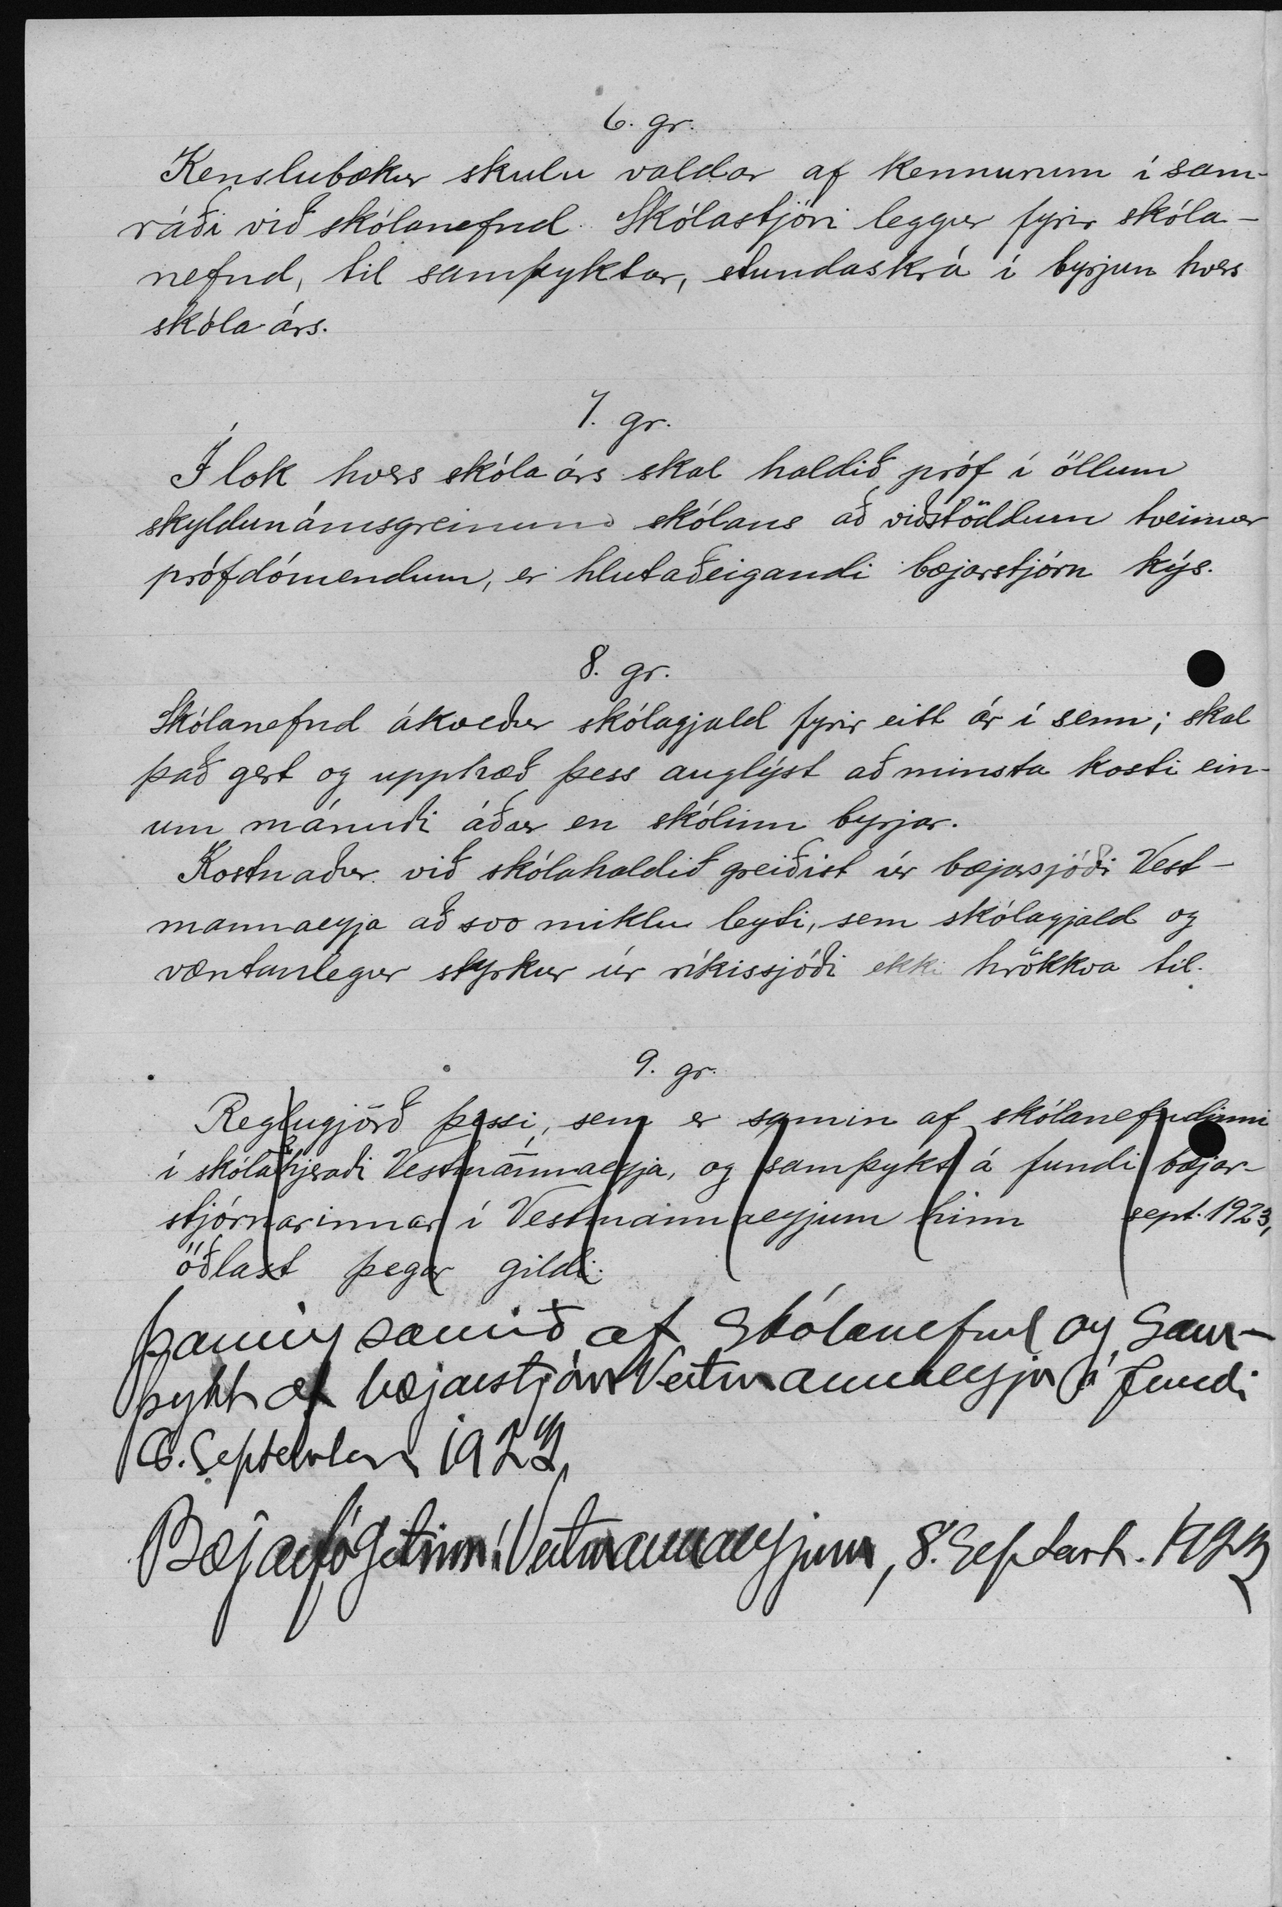 6. gr.
Kenslubækur skulu valdar af kennurum í sam-
ráði við skólanefnd. Skólastjóri leggur fyrir skóla-
nefnd, til samþyktar, stundaskrá í byrjun hvers
skólaárs.
7. gr.
Í lok hvers skólaárs skal haldið próf í öllum
skyldunámsgreinum skólans að viðstöddum tveimur
prófdómendum, er hlutaðeigandi bæjarstjórn kýs.
8. gr.
Skólanefnd ákveður skólagjald fyrir eitt ár í senn; skal
það gert og upphæð þess auglýst að minsta kosti ein-
um mánuði áður en skólinn byrjar.
Kostnaður við skólahaldið greiðist úr bæjarsjóði Vest-
mannaeyja að svo miklu leyti, sem skólagjald og
væntanlegur styrkur úr ríkissjóði ekki hrökkva til.
9. gr.
Reglugjörð þessi, sem er samin af skólanefndinni
í skólahjeraði Vestmannaeyja, og samþykt á fundi bæjar-
stjórnarinnar í Vestmannaeyjum hinn sept. 1923,
öðlast þegar gildi.
Þannig samið af Skólanefnd og Sam-
þykt af bæjarstjórn Vestmannaeyja á fundi
6. September 1923.
Bæjarfógetinn í Vestmannaeyjum, 8. Septbr. 1923